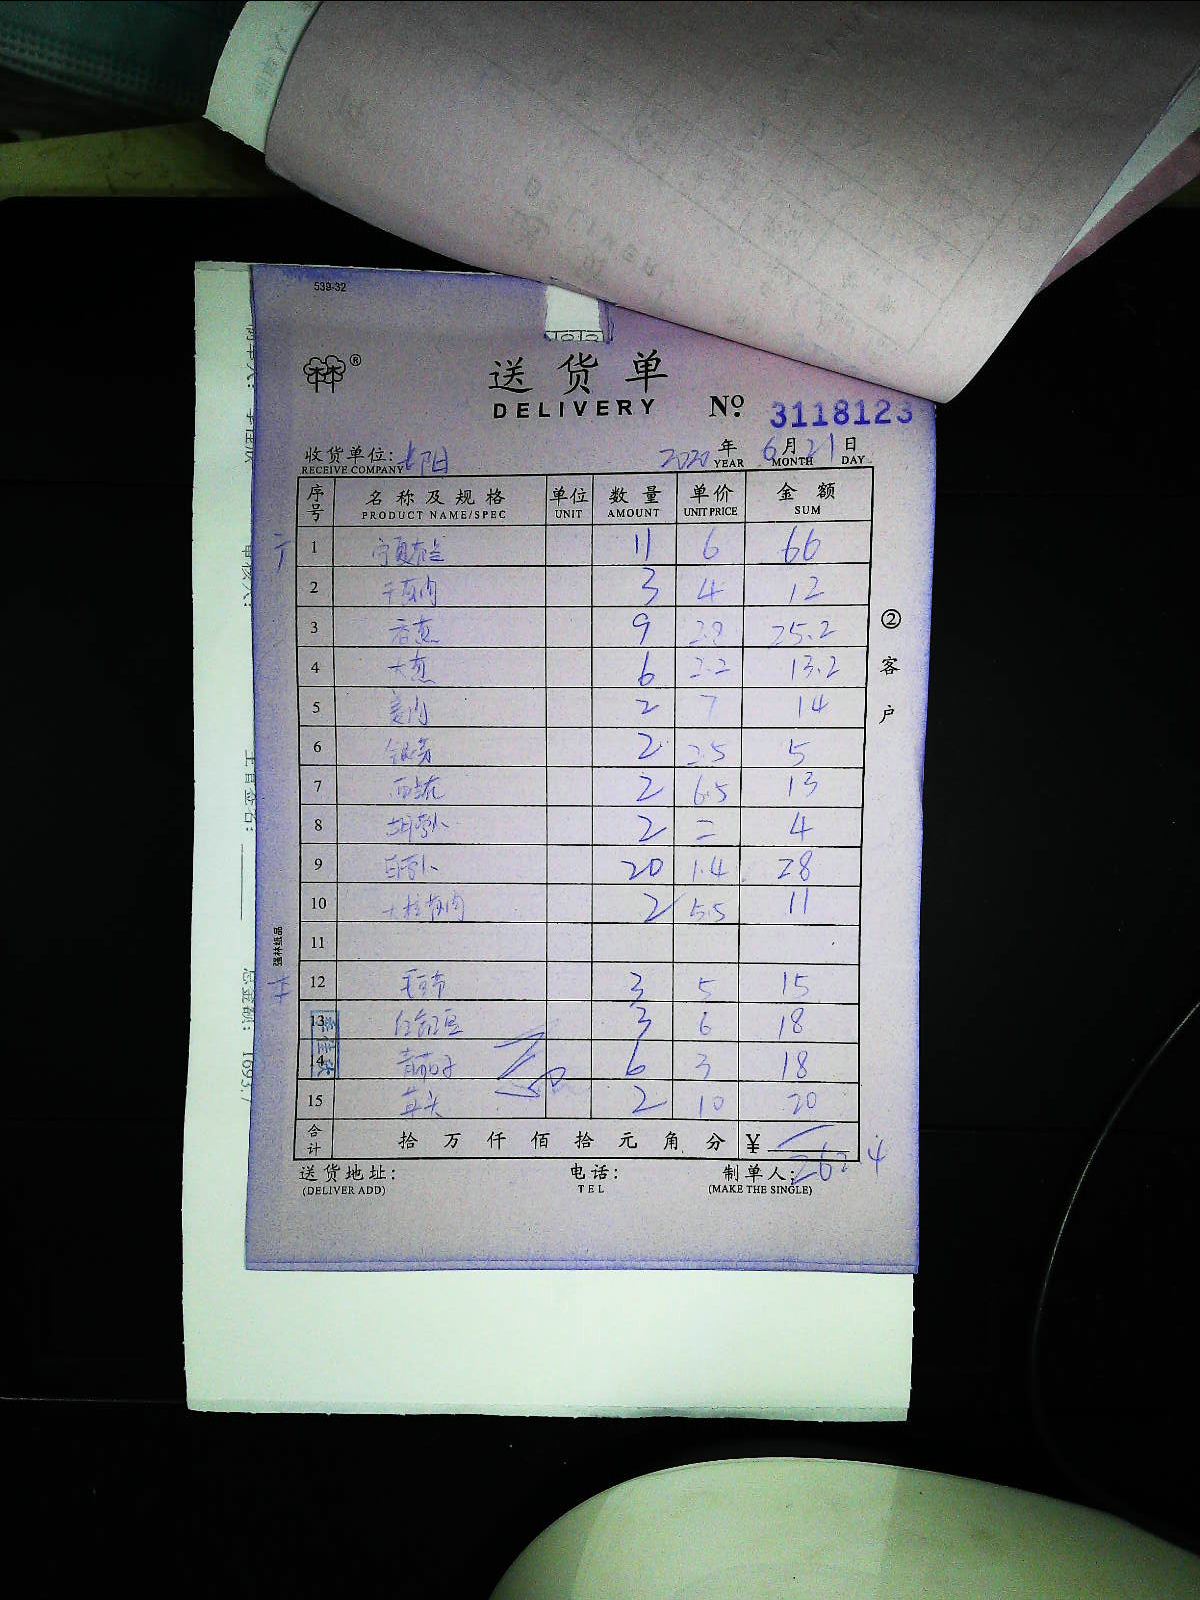 539-32
林®
送货单
DELIVERY No. 3118123
收货单位: 2020年 6月21日
RECEIVE COMPANY YEAR MONTH DAY
序号 名称及规格 单位 数量 单价 金额
PRODUCT NAME/SPEC UNIT AMOUNT UNIT PRICE SUM
1 宁夏菜 11 6 66
2 3 4 12
3 香葱 9 2.8 25.2
4 大葱 6 2.2 13.2
5 姜肉 2 7 14
6 银芽 2 2.5 5
7 西葫 2 6.5 13
8 胡萝卜 2 = 4
9 白萝卜 20 1.4 28
10 2 5.5 11
11
12 毛豆节 3 5 15
13 3 6 18
14 青茄子 6 3 18
15 草头 2 10 20
合计 拾万仟佰拾元角分 ¥
262.4
送货地址: 电话: 制单人:
(DELIVER ADD) TEL (MAKE THE SINGLE)
②客户
强林纸品
主管签名:
总金额: 1693.7